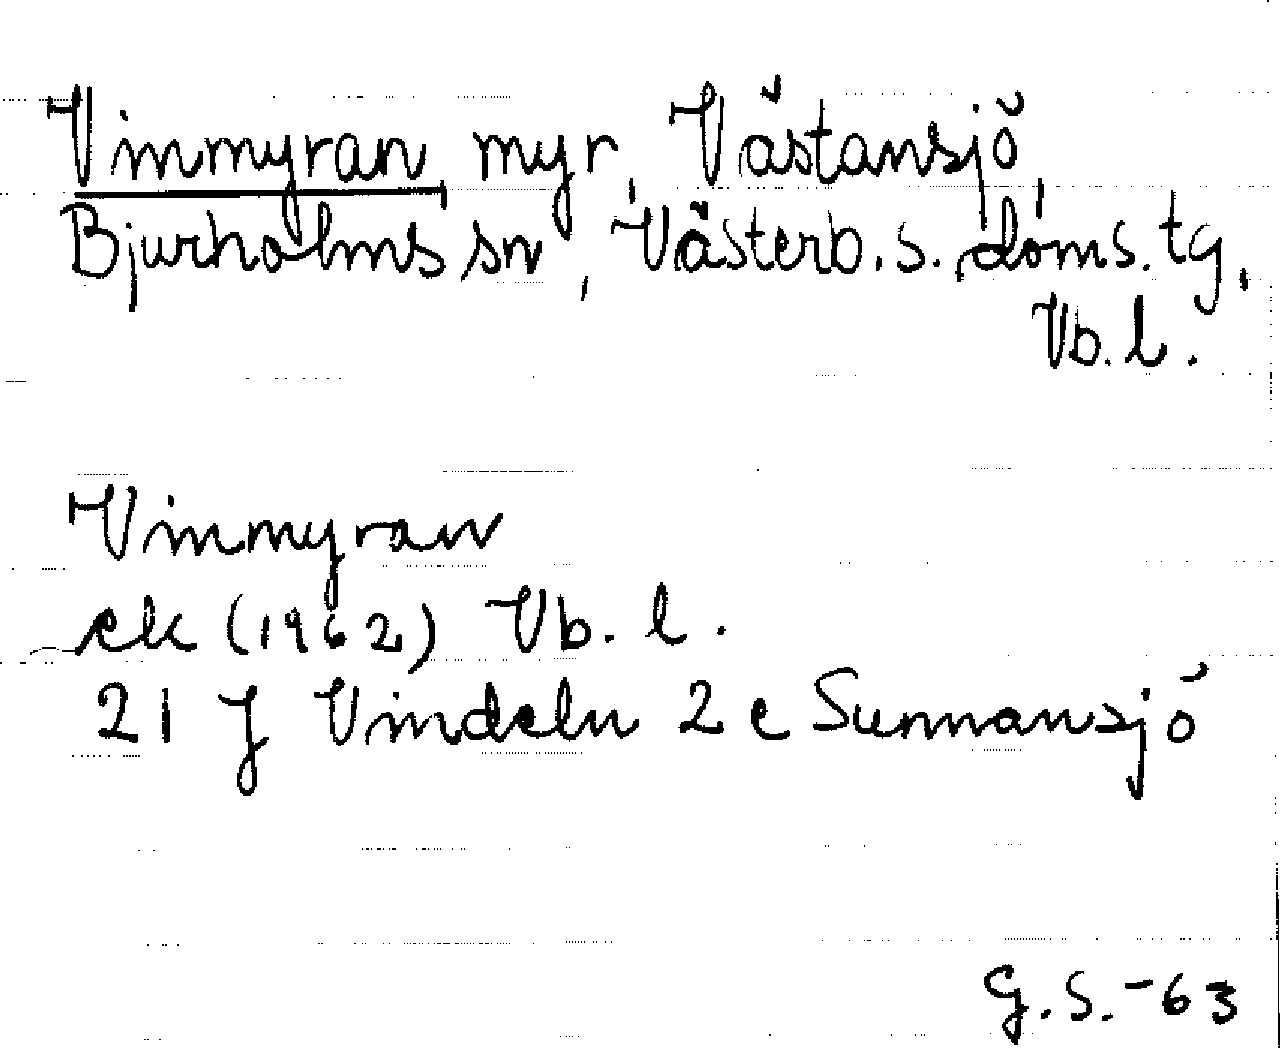 Vimmyran, myr, Västansjö,
Bjurholms sn, Västerb. s. doms. tg,
Vb. l.
Vimmyran
ek (1962) Vb. l.
21 J Vindeln 2 c Sunnansjö
G. S. -63